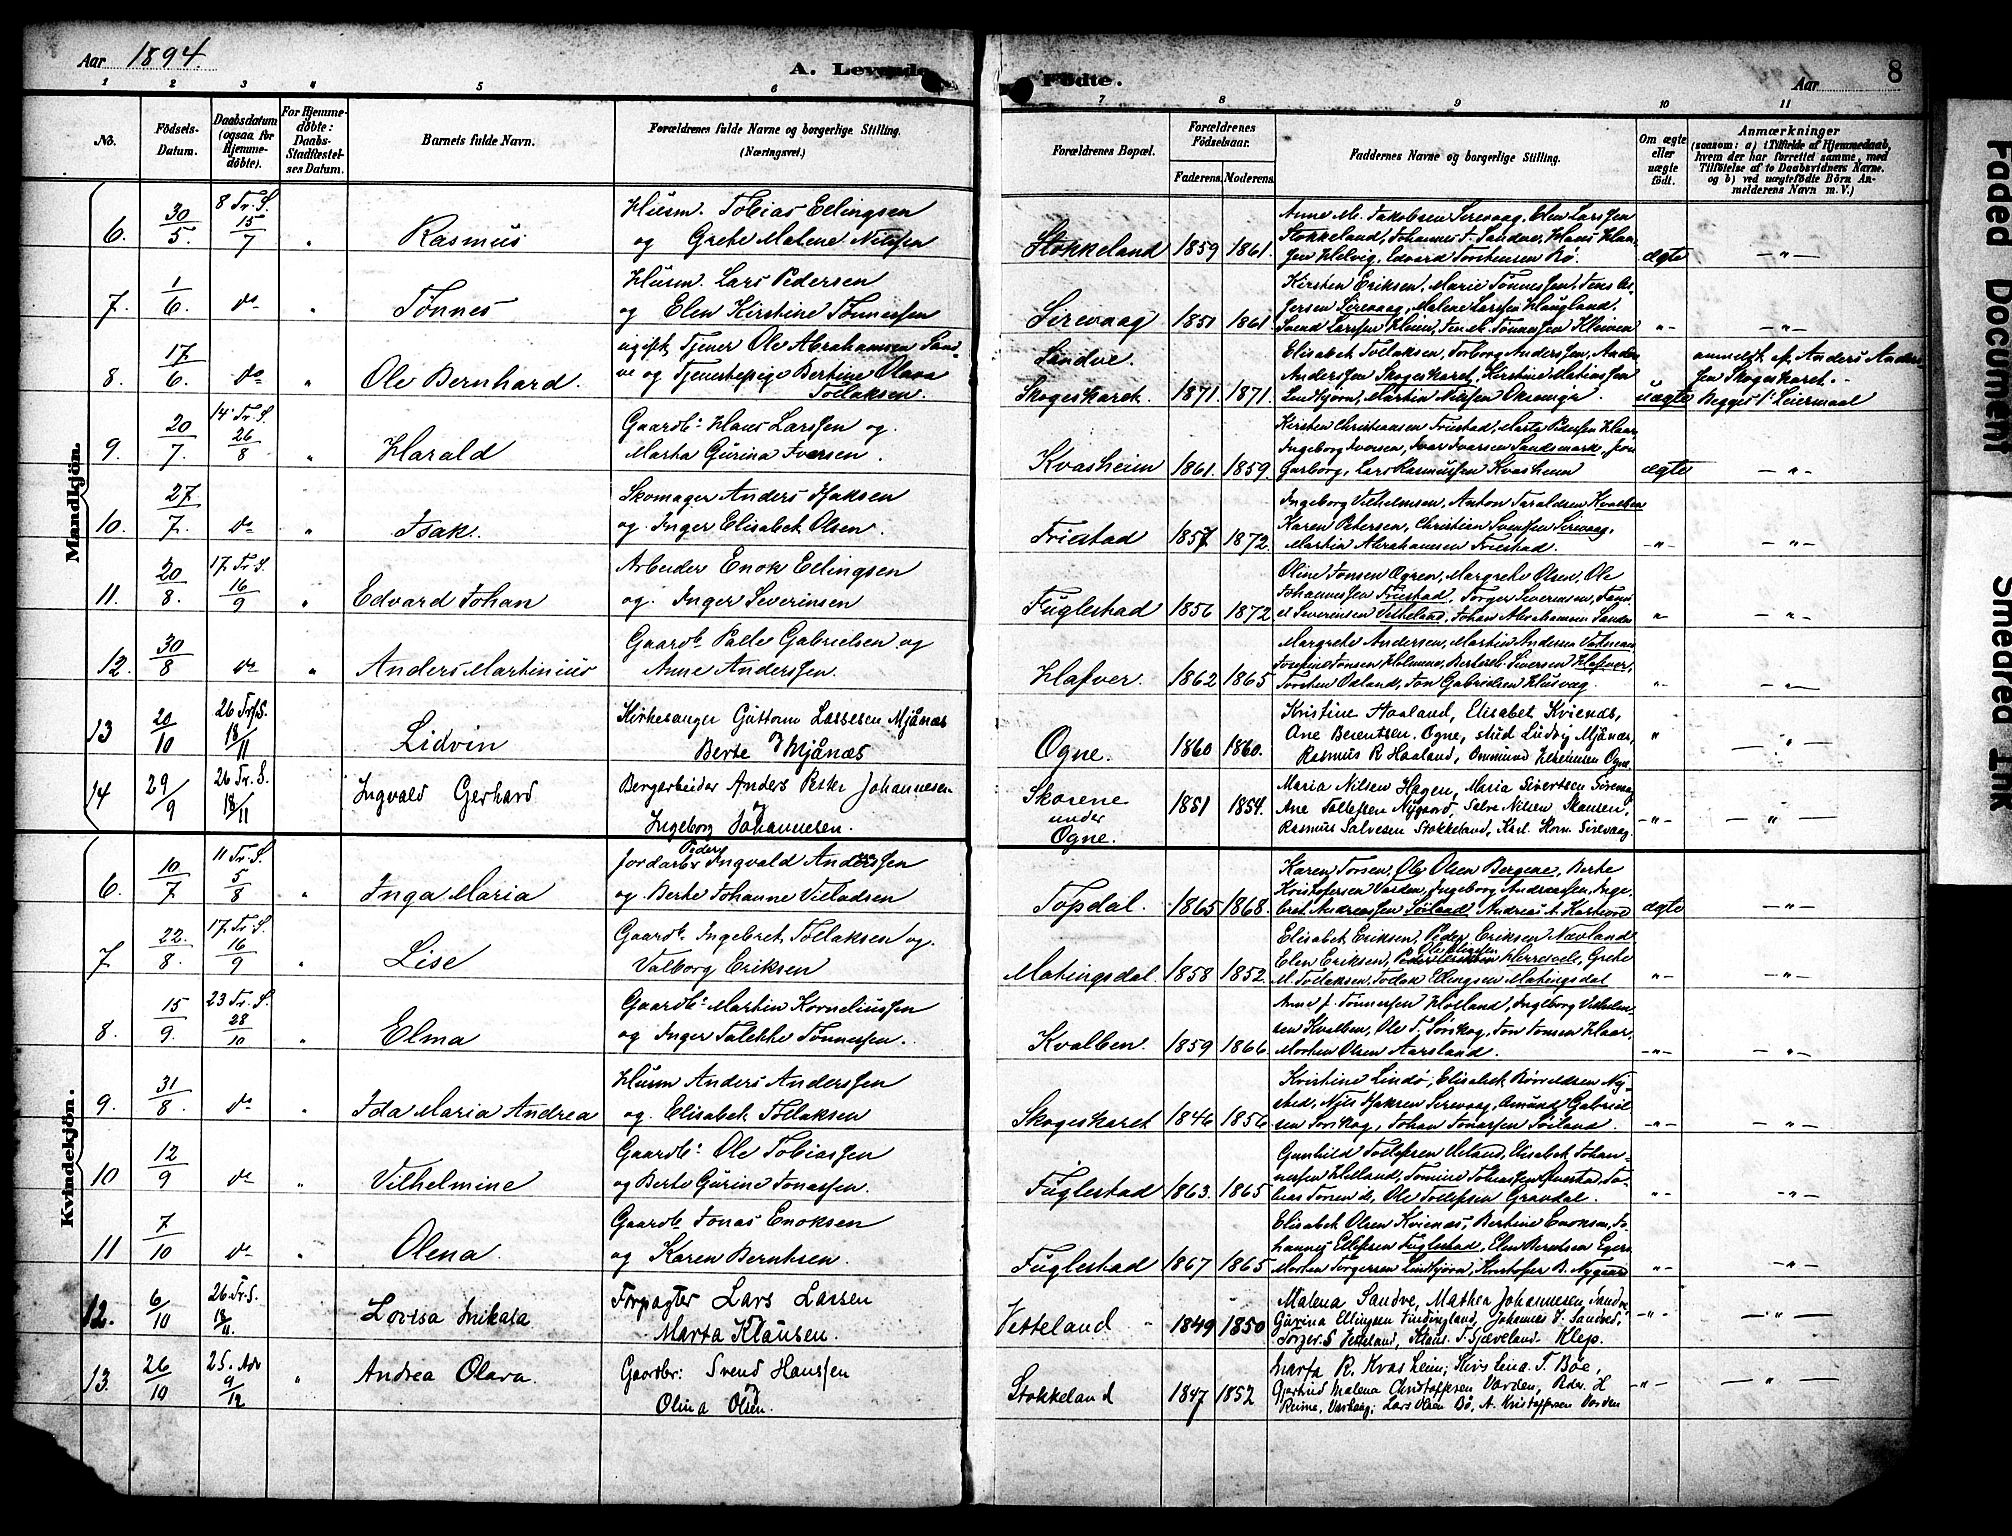 Aar 1894.
A. Levende
Fødte.
Aar
8
1 2 3 4 5 6 7 8 9 10 11
No.
Fødsels-Datum.
Daabsdatum (ogsaa for Hjemmedøbte).
For Hjemmedøbte: Daabs-Stadfæstelses Datum.
Barnets fulde Navn.
Forældrenes fulde Navne og borgerlige Stilling. (Næringsvei.)
Forældrenes Bopæl.
Forældrenes Fødselsaar.
Faderens. Moderens.
Faddernes Navne og borgerlige Stilling.
Om ægte eller uægte født.
Anmærkninger
(saasom: a) i Tilfælde af Hjemmedaab, hvem der har forrettet samme, med Tilføielse af to Daabsvidners Navne. og b) ved uægtefødte Børn Anmelderens Navn m. V.)
Mandkjön.
6. 30/5. 8 Tr. S. 15/7 " Rasmus
Husm. Tobias Edingsen
og Grete Malene Nilssen
Stokkeland 1859 1861.
Anne M. Jakobsen Sirevaag, Elen Larssen
Stokkeland, Johannes T. Sandve, Hans Haa-
gen Helvig, Edvard Torstensen Bø. ægte —"—
7. 1/6. do " Tønnes
Husm. Lars Pedersen
og Elen Kirstine Tønnessen
Sirevaag 1851 1861
Kirsten Eriksen, Marie Tønnessen, Jens As-
gersen Sirevaag, Malene Larssen Haugland.
—"— —"—
8. 17/6. do " Ole Bernhard.
ugift Tjener Ole Abrahamsen Sand-
ve og Tjenestepige Bertine Olava
Tollaksen.
Sandve.
Skogeskaret. 1871 1871
Elisabet Tollaksen, Torborg Anderssen, Anders
Anderssen Skogeskaret, Kirstine Mathiassen
Lindtjørn, Martin Nilssen Oksaviga. uægte
anmeldt af Anders Anders-
sen Skogeskaret.
Begges 1ste Leiermaal
9. 20/7. 14 Tr. S. 26/8 " Harald
Gaardbr: Hans Larssen og
Marta Gurina Iversen.
Kvasheim 1861. 1859.
Kirsten Christiansen Friestad, Marta Pedersen Haar,
Ingeborg Iversen, Ivar Iversen Sandsmark, Jon
Garborg, Lars Rasmussen Kvasheim ægte —"—
10. 27/7. do " Isak.
Skomager Anders Isaksen
og Inger Elisabet Olsen.
Friestad 1857 1872.
Ingeborg Vilhelmsen, Anton Taraldsen Kvalben
Karen Petersen, Christian Svenssen Sirevaag,
Martin Abrahamsen Friestad. —"— —"—
11. 20/8. 17 Tr. S. 16/9 " Edvard Johan
Arbeider Enok Edingsen
og. Inger Severinsen
Fuglestad 1856 1872
Oline Jonsen Ogren, Margrete Olsen, Ole
Johannessen Friestad, Torger Severinsen, Dani-
el Severinsen Vetteland, Johan Abrahamsen Sandve —"— —"—
12. 30/8 do " Anders Martinius
Gaardbr Palle Gabrielsen og
Anne Anderssen.
Hafver. 1862 1865
Margrete Andersen, Martin Andersen
Josefine Jonsen Holmane, Berte M. Siversen Hafver,
Torsten Oxland, Jon Gabrielsen Husvæg. —"— —"—
13 20/10 26 Tr. S. 18/11 Lidvin
Kirkesanger Guttorm Lassesen Mjånæs
og Berte Mjånæs
Ogne. 1860 1860.
Kristine Haaland, Elisabet Kvienæs,
Ane Berentsen. Ogne, stud Ludvig Mjånæs,
Rasmus R Haaland, Ommund Ogne. " —"—
14 29/9 26 Tr. S. 18/11 Ingvald Gerhard
Bergarbeider Anders Peter Johannesen
og Ingeborg Johannesen.
Skorene
under
Ogne. 1851 1854.
Maria Nilsen Hagen, Maria Sivertsen Sirevaag
Ane Tollefsen Nygaard, Salve Nilsen Skansen,
Rasmus Salvesen Stokkeland, Karl Horn Sirevaag. —"— —"—
Kvindekjön.
6. 10/7 11 Tr. S. 5/8 " Inga Maria
Jordarbr Peder Ingvald Anderssen
og Berte Johanne Villadsen
Topdal. 1865 1868.
Karen Torsen, Ole Olsen Bergene, Berte
Kristofersen Varden, Ingeborg Andreassen, Inge-
bret Andreassen Søiland, Andreas A. Kartevold ægte —"—
7 22./8. 17 Tr. S. 16/9 " Lise
Gaardbr. Ingebret Tollaksen og.
Valborg Eriksen
Matingsdal. 1858 1852.
Elisabet Eriksen, Peder Eriksen Nævland
Elen Eriksen, Herresvel, Grete
M. Tollaksen, Tollak Edingsen Matingsdal —"— —"—
8. 15/9. 23 Tr. S. 28/10 " Elma
Gaardbr: Martin Korneliussen
og Inger Talette Tønnessen.
Kvalben. 1859 1866.
Anne J. Tønnessen Hølland, Ingeborg Vilhelm-
sen Kvalben, Ole T. Sørskog, Jon Jonsen Haar,
Morten Olsen Aarsland. —"— —"—
9. 31/8. do " Ida Maria Andrea
Husm Anders Anderssen
og. Elisabet Tollaksen
Skogeskaret 1846 1856.
Kristine Lindø, Elisabet Børrildsen Ny-
sted, Nils Isaksen Sirevaag, Omund Gabriel-
sen Sørskog, Johan Jonassen Søiland. —"— —"—
10 12/9 do " Vilhelmine
Gaardbr: Ole Tobiassen
og Berte Gurine Jonassen.
Fuglestad 1863. 1865
Gunhild Tollefsen Ueland, Elisabet Johan-
nessen Ueland, Tomine Tobiassen
Ole Tollefsen Gravdal. —"— —"—
11 7/10 do " Olena.
Gaardbr. Jonas Enoksen
og Karen Berntsen.
Fuglestad 1867 1865
Elisabet Olsen Kvienæs, Bertine Enoksen, Jo-
hannes Ellefsen Fuglestad, Elen Berntsen Eger.
Morten Torgersen Lindtjørn, Kristofer B. Nygaard —"— —"—
12. 6/10 26 Tr. S. 18/11. Lovisa Mikala
Forpagter Lars Larsen
og Marta Klausen.
Vetteland 1849 1850
Malena Sandve, Mathea Johannesen Sandve
Gurina Ellingsen Findingland, Johannes J. Sandved,
Torger. S Vetteland, Klaus. T. Gjæveland. Klep. —"— —"—
13. 26/10 25. Adv 9/12 " Andrea Olava.
Gaardbr: Svend Hanssen
og Olina Olsen.
Stokkeland 1847 1852
Marta R. Kvasheim; Kirstina. T. Bøe,
Gjertrud Malena Christoffersen Varden, Peder. H
Reime, Varhaug; Lars Olsen Bø, A. Kristoffersen Varden —"— —"—
Faded Document
Smeared Ink